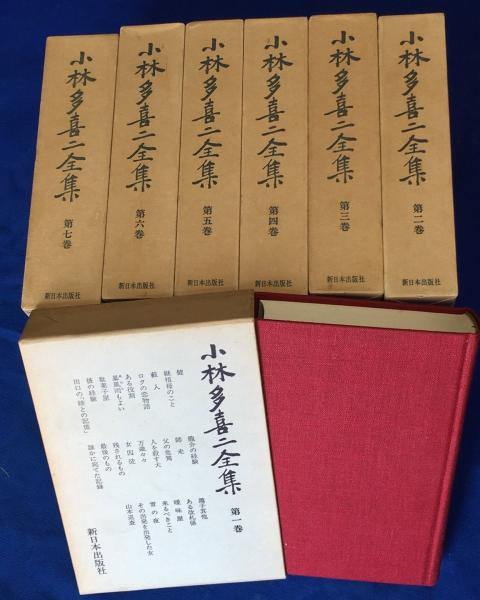 小林多喜二全集
第七巻
新日本出版社
小林多喜二全集
第六巻
新日本出版社
小林多喜二全集
第五巻
新日本出版社
小林多喜二全集
第四巻
新日本出版社
小林多喜二全集
第三巻
新日本出版社
小林多喜二全集
第二巻
新日本出版社
小林多喜二全集
第一巻
健
継祖母のこと
藪入
ロクの恋物語
ある役割
暴風雨もよい
駄菓子屋
彼の経験
出口の「姉との記憶」
龍介の経験
師走
父の危篤
人を殺す犬
万歳々々
女囚徒
残されるもの
最後のもの
誰かに宛てた記録
滝子其他
ある改札係
曖昧屋
来るべきこと
雪の夜
その出発を出発した女
山本巡査
新日本出版社